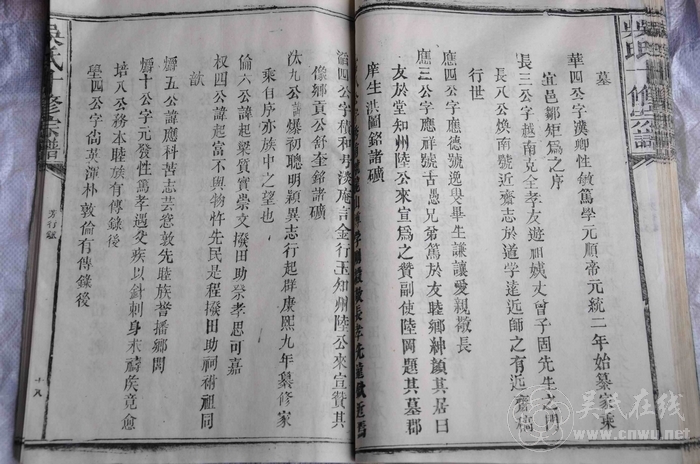 吳氏十修宗譜
墓
華四公字漢卿性敏篤學元順帝元統二年始纂家乘
宜邑鄒矩為之序
長三公字越南克全孝友遊姨丈曾子固先生之門
長八公煥南號近齋志於道學遠近師之有近齋稿
行世
應四公字應德號逸叟畢生謙讓愛親敬長
應三公字應祥號古愚兄弟篤於友睦鄉紳顏其居曰
友於堂知州陸公來宣為之贊副使陸岡題其墓郡
庠生洪圖銘諸礦
滔四公字積和號淡庵言金行玉知州陸公來宣贊其
像鄉貢公舒奎銘諸礦
汰九公諱爆初聰明穎異志行起群康熙九年纂修家
乘自序亦族中之望也
倫六公諱起聚質實崇文撥田助祭孝思可嘉
權四公諱起富不與物忤先民是程撥田助祠祔祖同
歆
爝五公諱應科苦志芸窓敦先睦族譽播鄉閭
爝十公字元發性篤孝遇父疾以針刺身求禱疾竟愈
培八公務本睦族有傳錄後
學四公字尚英渾朴敦倫有傳錄後
吳氏十修宗譜
芳行錄
十八
吴氏在线
www.cnwu.net